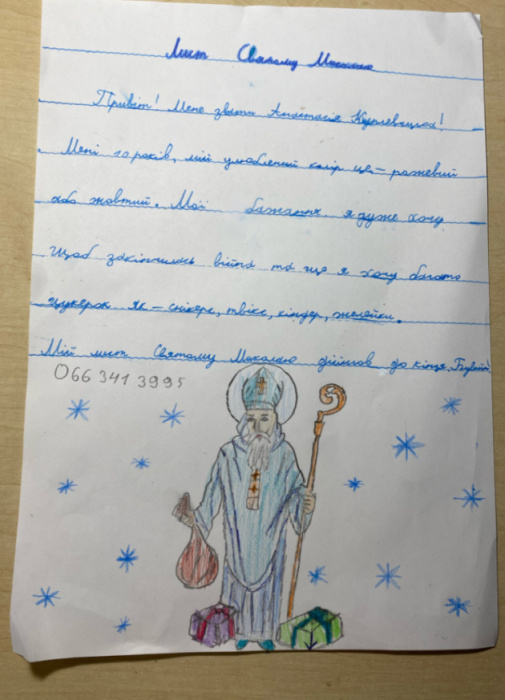 Лист Святому Миколаю
Привіт! Мене звати Анастасія
Мені 10 років, мій улюблений колір це – рожевий
або жовтий. Мої бажання я дуже хочу
щоб закінчилась війна та ще я хочу багато
цукерок як – снікерс, твікс, кіндер, желейки.
Мій лист Святому Миколаю дійшов до кінця. Бувай!
066 341 3995